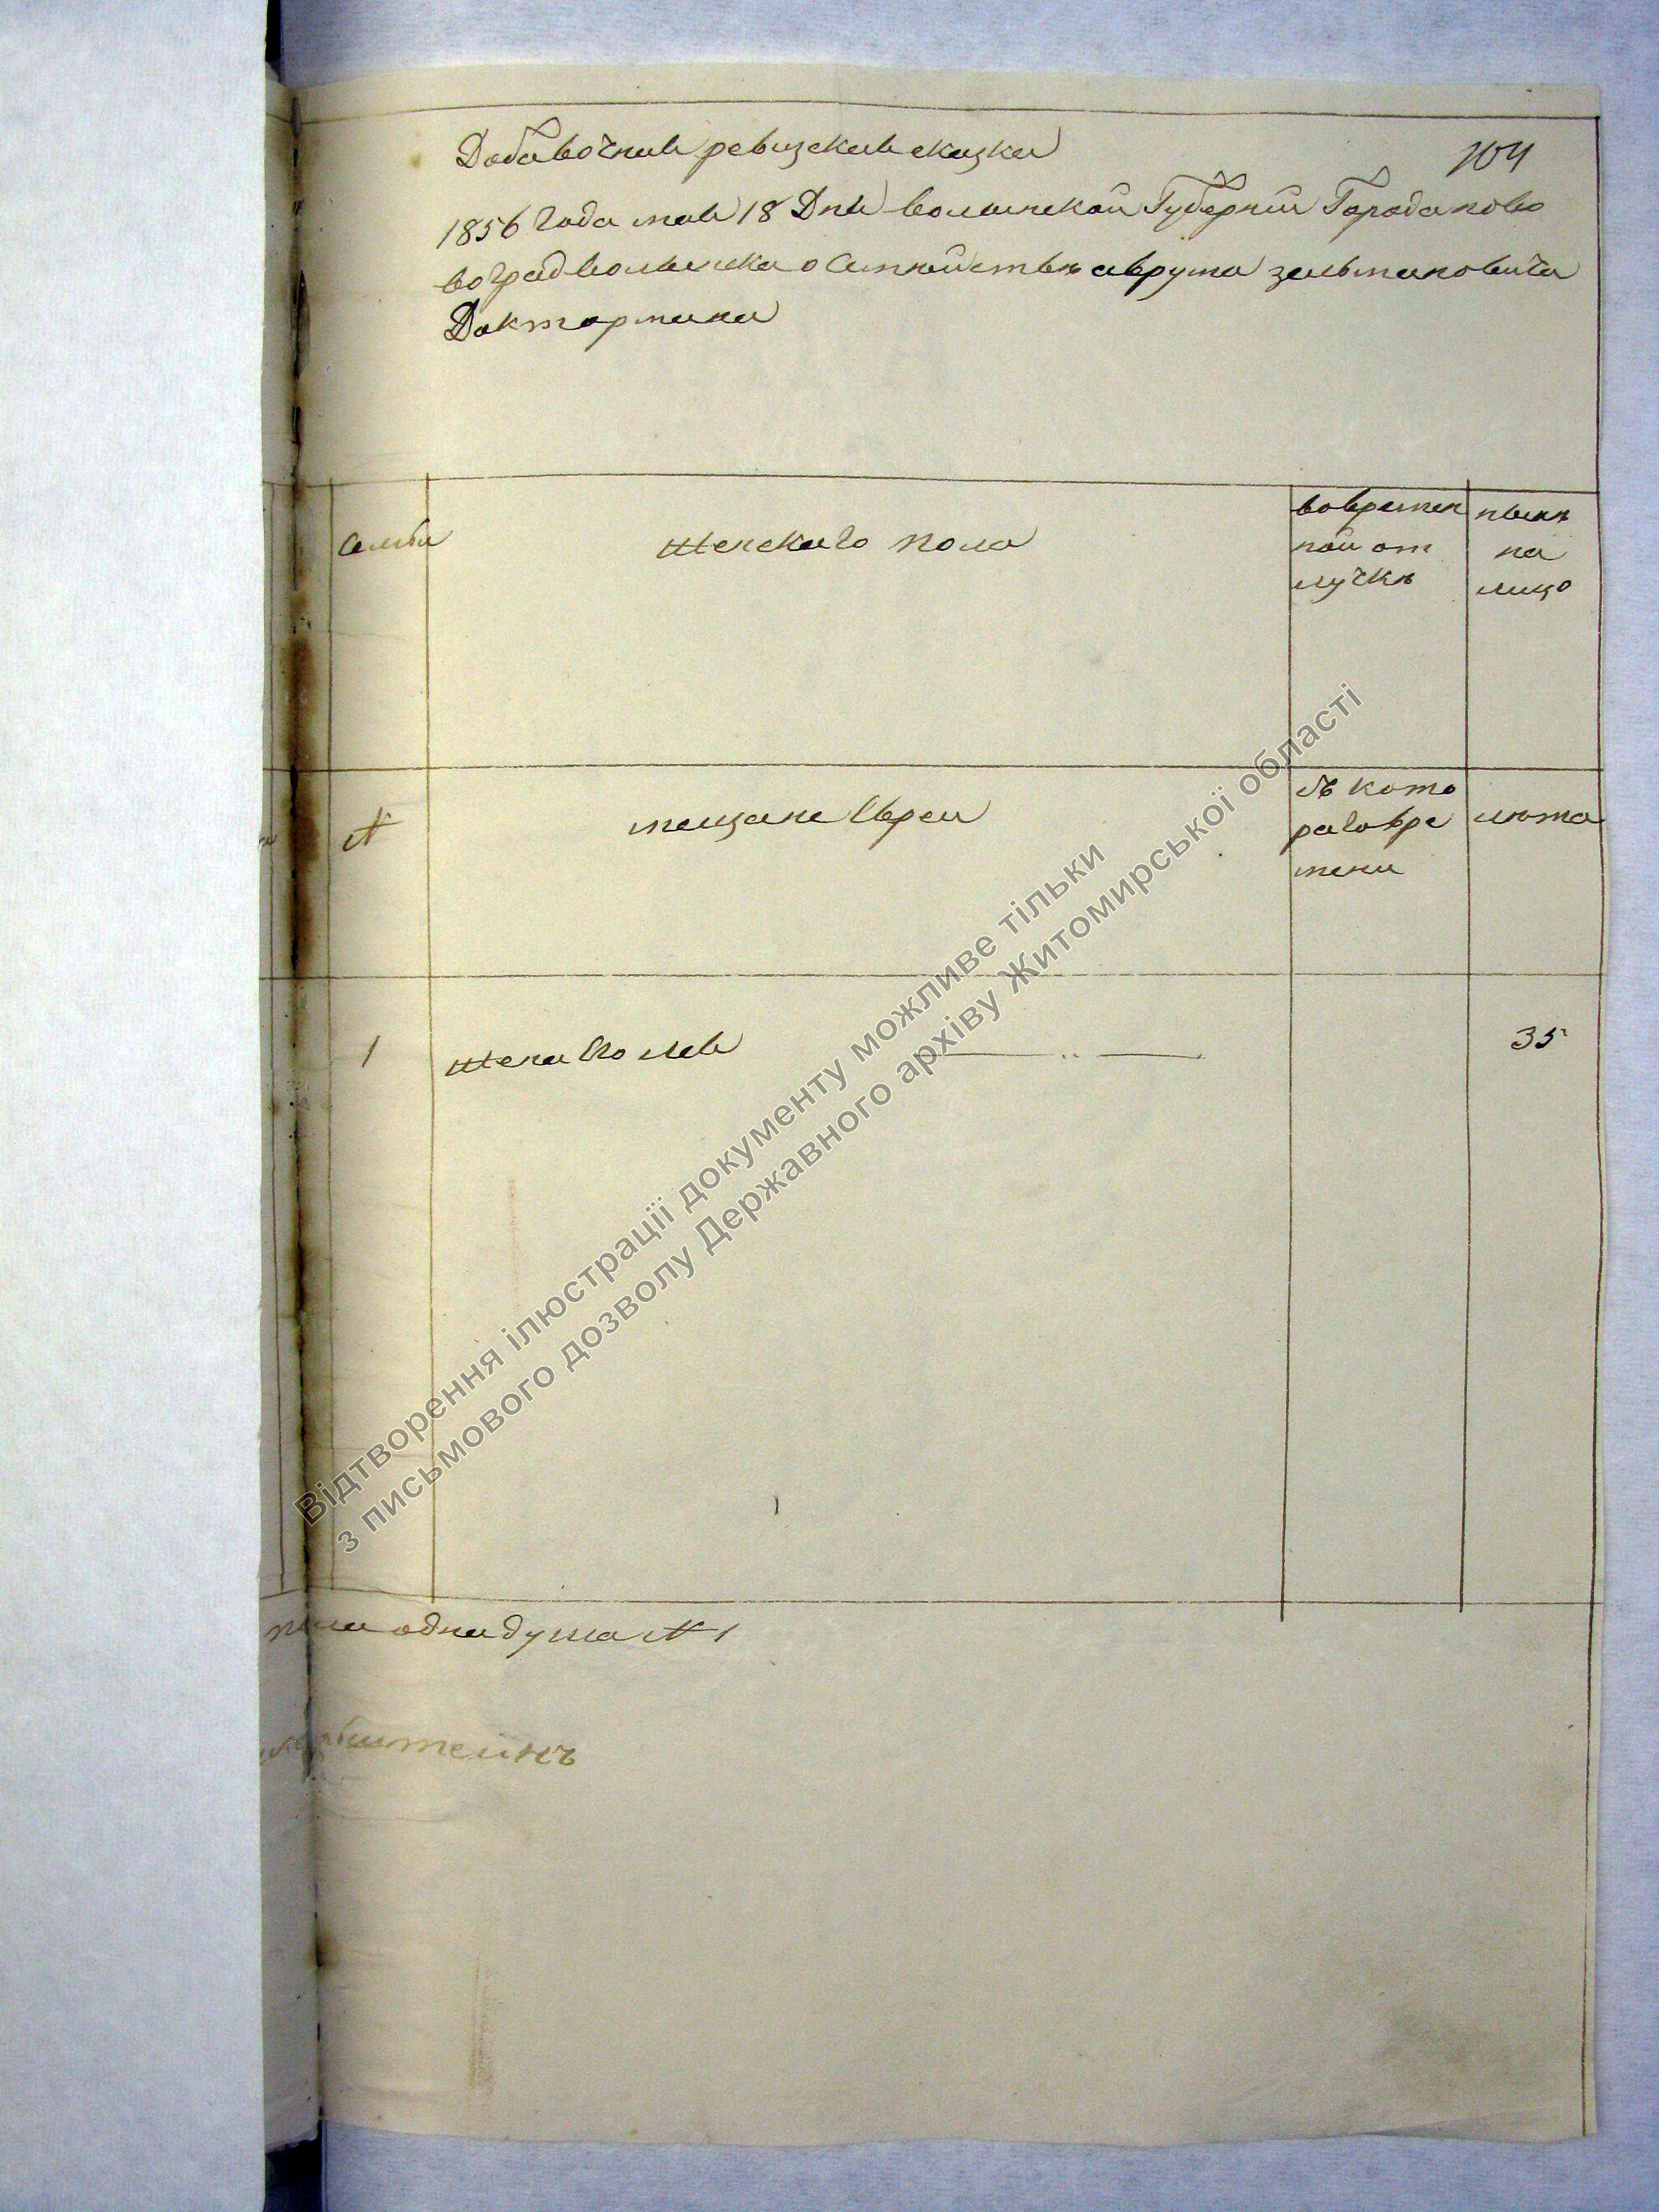 Добавочная ревизская сказка
104
1856 Года мая 18 Дня волынской Губернии Города ново
водградволынска о Семействѣ аврума зельмановича
Доктормана
Семьи
женскаго пола
вовремен
ной от
лучкѣ
нынѣ
на
лицо
№
мещане Евреи
съ кото
раговре
мени
лѣта
1
жена
35
одна душа № 1
штейнъ
Відтворення ілюстрації документу можливе тільки
з письмового дозволу Державного архіву Житомирської області